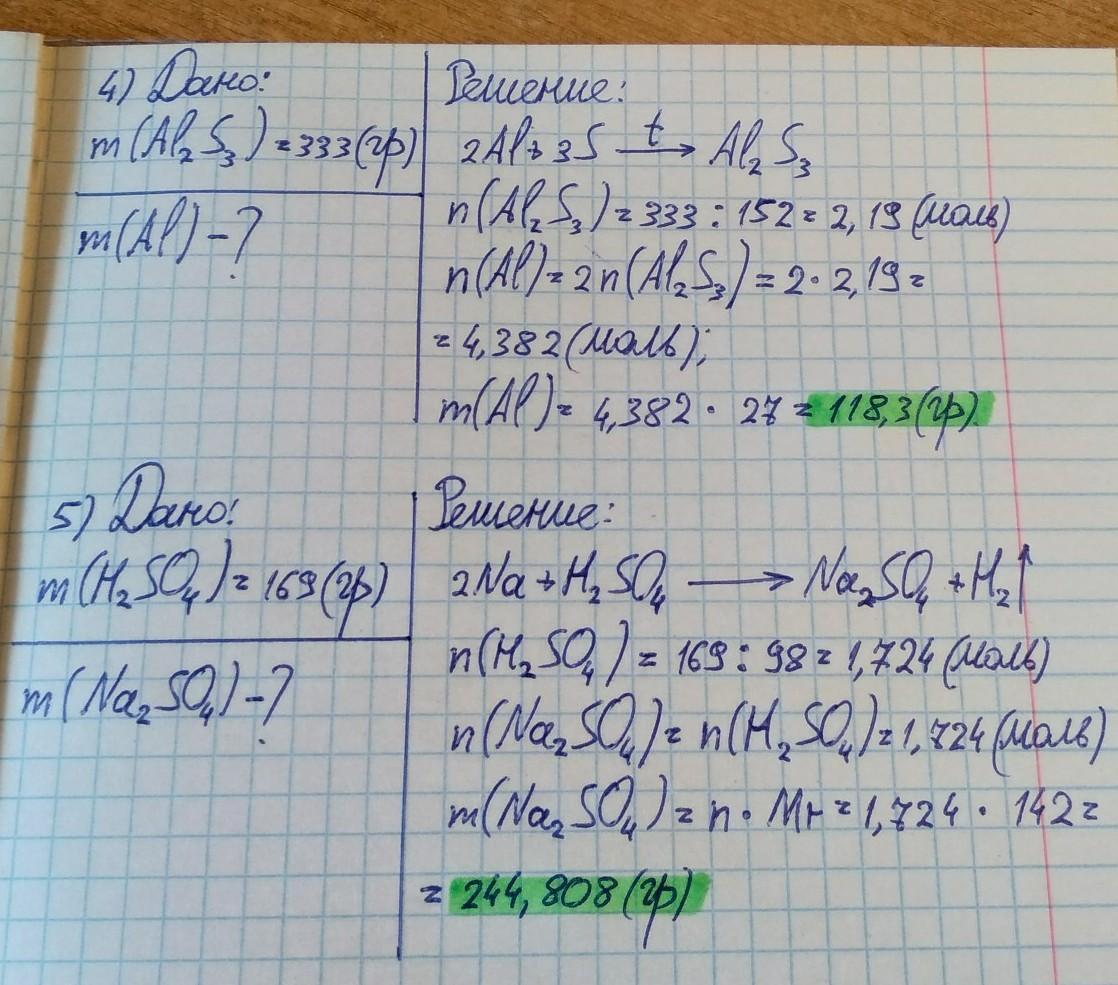 4) Дано:
m(Al₂S₃)=333(гр)
m(Al)-?
Решение:
2Al+3S t→ Al₂S₃
n(Al₂S₃)=333:152=2,19(моль)
n(Al)=2n(Al₂S₃)=2·2,19=
=4,382(моль);
m(Al)=4,382·27=118,3(гр).
5) Дано:
m(H₂SO₄)=169(гр)
m(Na₂SO₄)-?
Решение:
2Na+H₂SO₄ → Na₂SO₄+H₂↑
n(H₂SO₄)=169:98=1,724(моль)
n(Na₂SO₄)=n(H₂SO₄)=1,724(моль)
m(Na₂SO₄)=n·Mr=1,724·142=
=244,808(гр)